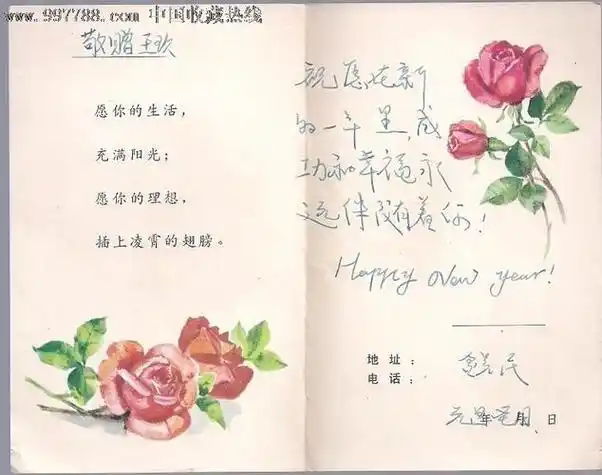 www.997788.com 中国收藏热线
敬赠王欢
愿你的生活，
充满阳光；
愿你的理想，
插上凌霄的翅膀。
祝愿在新
的一年里，成
功和幸福永
远伴随着你！
Happy New year!
地址：
电话：
年 月 日